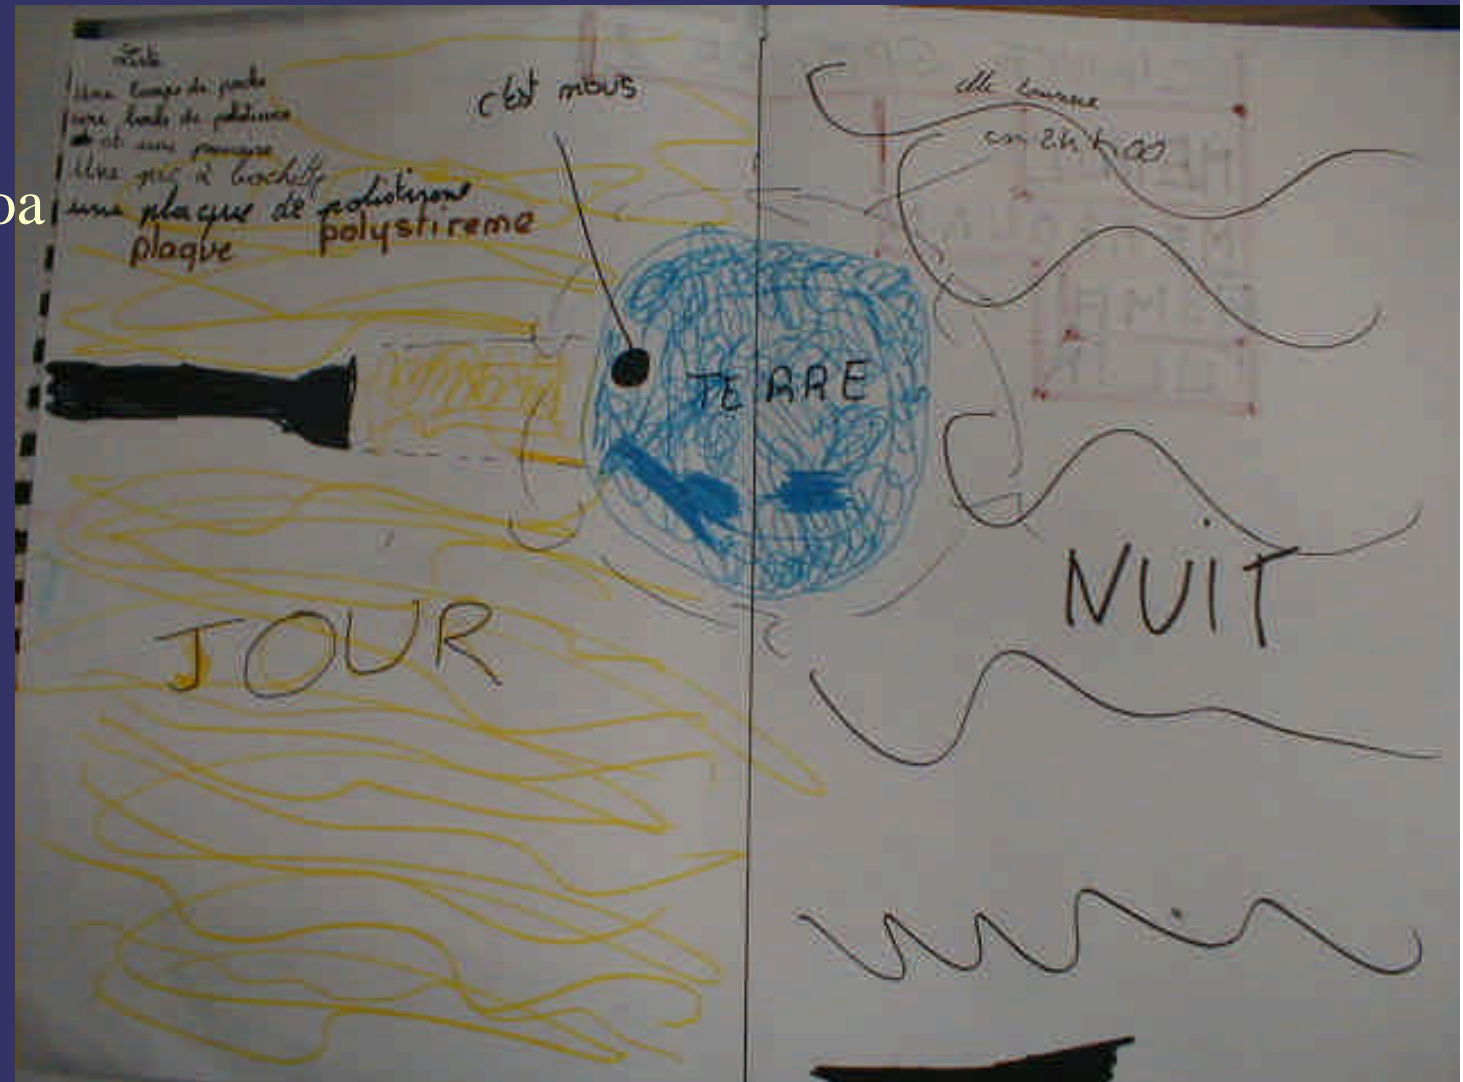 Liste
Une lampe de poche
une boule de
et une
Une pic à brochette
une plaque de polistirene
plaque polystireme
c'est nous
elle tourne
en 24h00
TERRE
JOUR
NUIT
oa